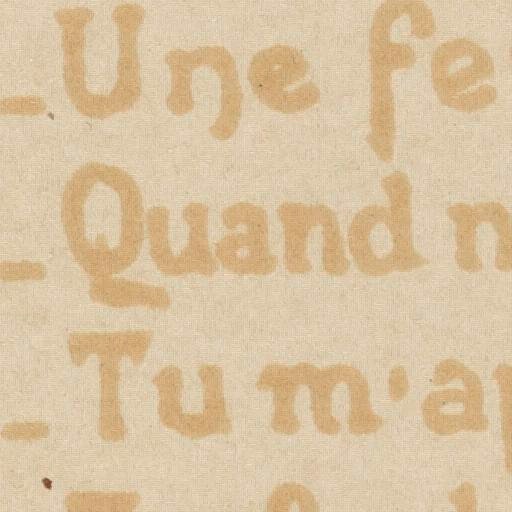 _ Une fe
_ Quand n
_ Tu m'ap